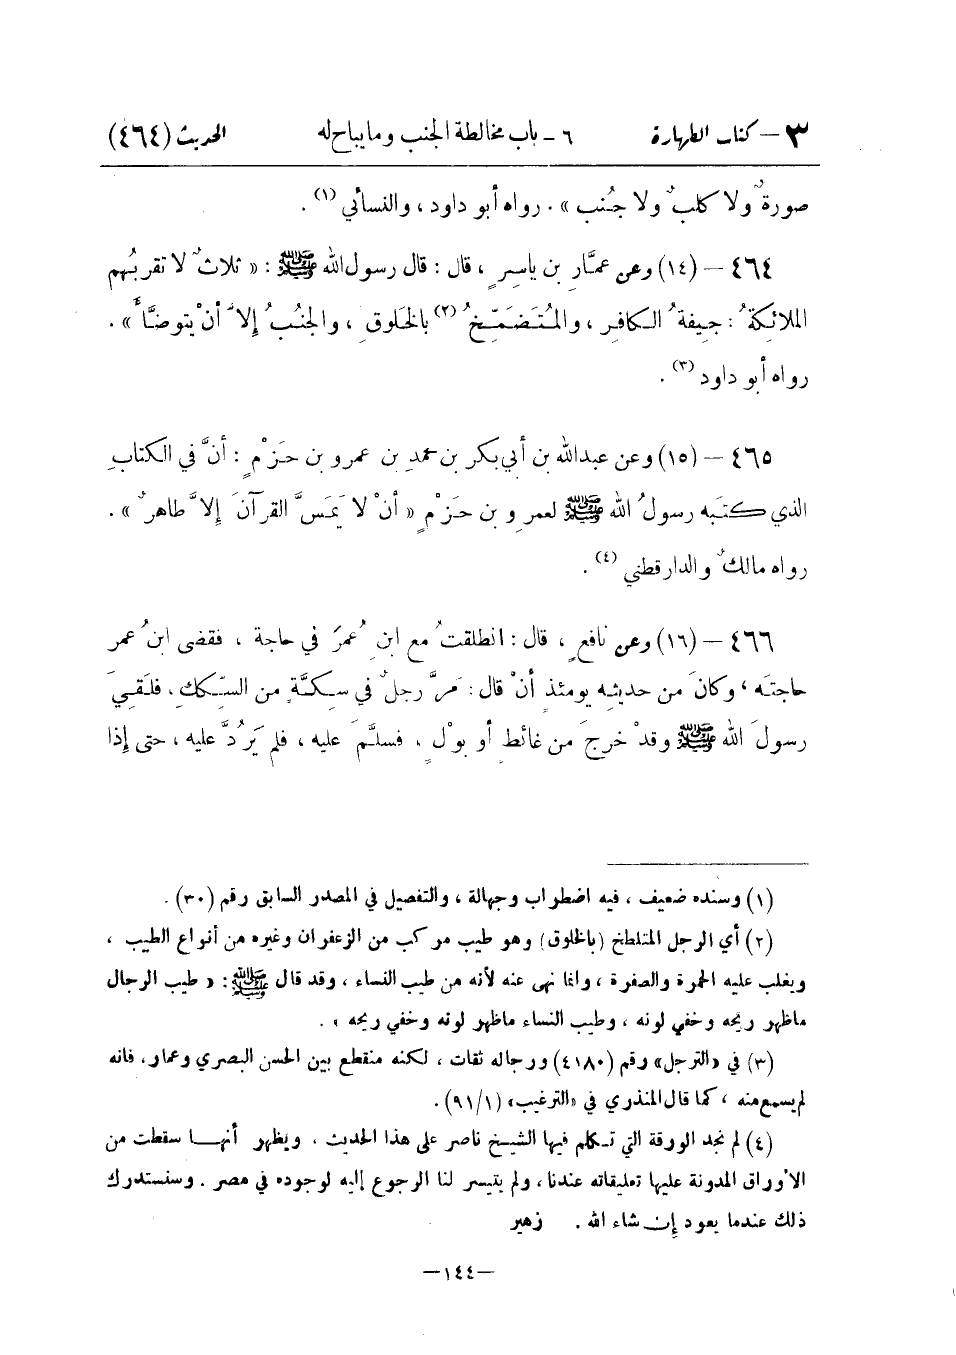 ٣ – كتاب الطهارة ٦ – باب مخالطة الجنب وما يباح له الحديث (٤٦٤)
صورةٌ ولا كلبٌ ولا جُنب» . رواه أبو داود ، والنسائي (١) .
٤٦٤ – (١٤) وعن عمَّارِ بن ياسرٍ ، قال : قال رسول الله ﷺ : « ثلاثٌ لا تقربُهم
الملائكةُ : جيفةُ الكافرِ ، والمُتَضَمِّخُ (٢) بالخَلوقِ ، والجنُبُ إلاَّ أنْ يتوضَّأَ » .
رواه أبو داود (٣) .
٤٦٥ – (١٥) وعن عبدالله بن أبي بكر بن محمدِ بن عمرو بن حَزْمٍ : أنَّ في الكتابِ
الذي كتَبه رسولُ الله ﷺ لعمرِو بن حَزْمٍ « أنْ لا يَمَسَّ القرآنَ إلاَّ طاهرٌ » .
رواه مالكٌ والدارقطني (٤) .
٤٦٦ – (١٦) وعن نافعٍ ، قال : انطلقتُ مع ابنِ عُمرَ في حاجة ، فقضى ابنُ عمر
حاجتَه ، وكانَ من حديثِه يومئذٍ أنْ قال : مَرَّ رجلٌ في سِكَّةٍ من السِّككِ ، فلَقيَ
رسولَ الله ﷺ وقدْ خرجَ من غائطٍ أو بوْلٍ ، فسلَّمَ عليه ، فلم يَرُدَّ عليه ، حتى إذا
(١) وسنده ضعيف ، فيه اضطراب وجهالة ، والتفصيل في المصدر السابق رقم (٣٠) .
(٢) أي الرجل المتلطخ (بالخلوق) وهو طيب مركب من الزعفران وغيره من أنواع الطيب ،
ويغلب عليه الحمرة والصفرة ، وانما نهى عنه لأنه من طيب النساء ، وقد قال ﷺ : « طيب الرجال
ماظهر ريحه وخفي لونه ، وطيب النساء ماظهر لونه وخفي ريحه » .
(٣) في «الترجل» رقم (٤١٨٠) ورجاله ثقات ، لكنه منقطع بين الحسن البصري وعمار، فانه
لم يسمع منه ، كما قال المنذري في «الترغيب» (٩١/١) .
(٤) لم نجد الورقة التي تكلم فيها الشيخ ناصر على هذا الحديث ، ويظهر أنها سقطت من
الأوراق المدونة عليها تعليقاته عندنا ، ولم يتيسر لنا الرجوع إليه لوجوده في مصر . وسنستدرك
ذلك عندما يعود إن شاء الله . زهير
–١٤٤–